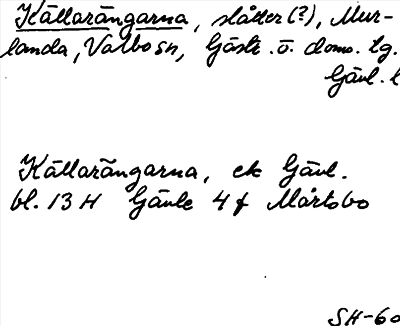 Källarängarna, slåtter(?), Mur-
landa, Valbo sn, Gästr. ö. doms. tg.
Gävl. l
Källarängarna, ek Gävl.
bl. 13 H Gävle 4 f Mårtsbo
SH-60